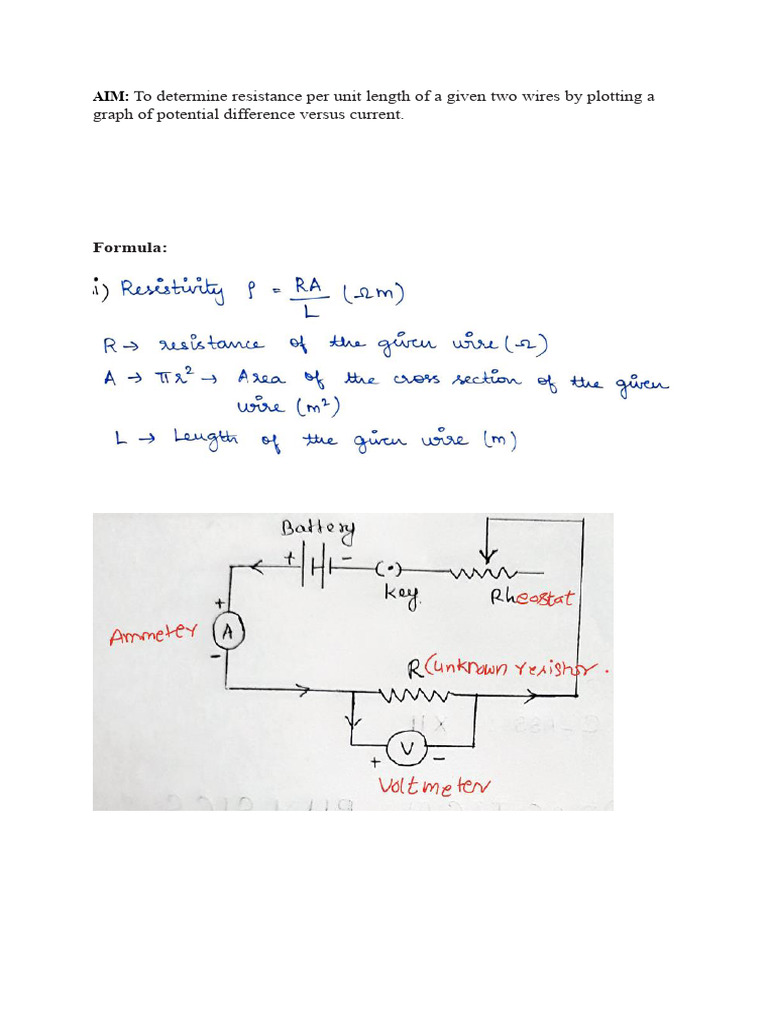 AIM: To determine resistance per unit length of a given two wires by plotting a
graph of potential difference versus current.
Formula:
i) Resistivity ρ = RA/L (Ωm)
R → resistance of the given wire (Ω)
A → πr² → Area of the cross section of the given
wire (m²)
L → Length of the given wire (m)
Battery
+ −
(•)
Key.
Rheostat
+
Ammeter
A
−
R (unknown resistor.
V
+ −
Voltmeter